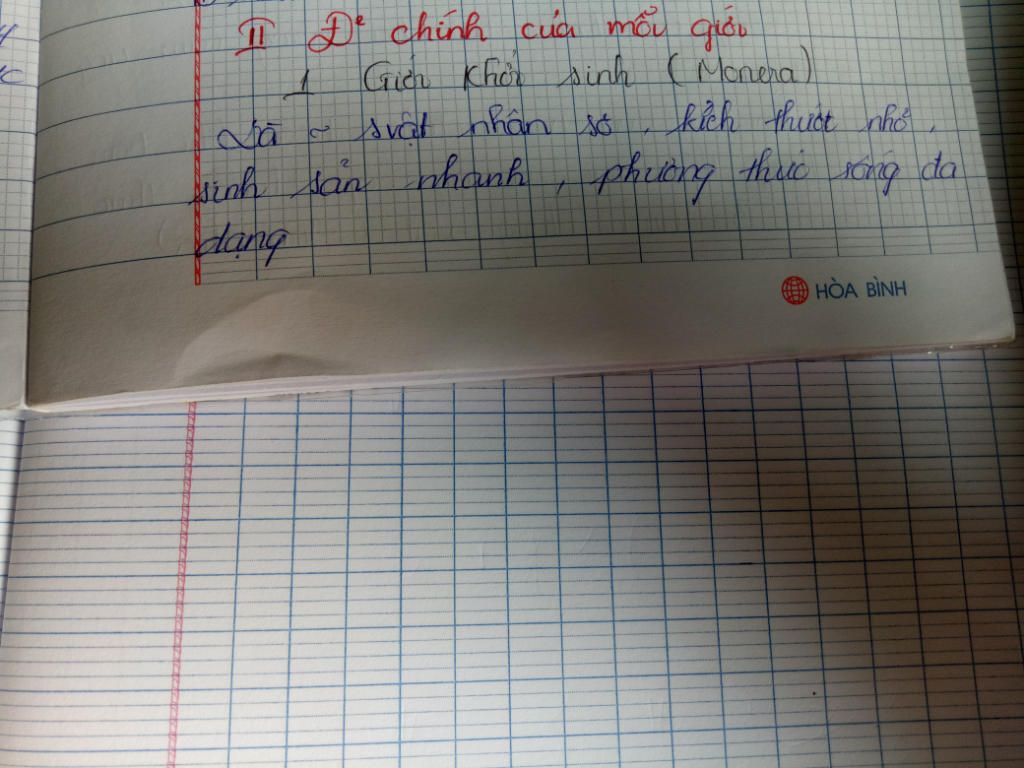 II Đ² chính của mỗi giới
1 Giới Khởi sinh (Monera)
Là ~ svật nhân sơ, kích thướt nhỏ,
sinh sản nhanh, phương thức sống đa
dạng
HÒA BÌNH